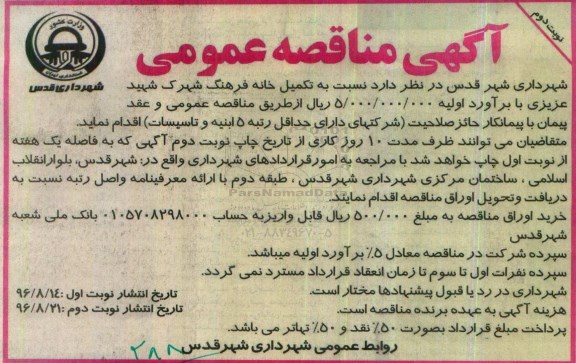 نوبت دوم
آگهی مناقصه عمومی
وزارت کشور
شهرداری قدس
شهرداری شهر قدس در نظر دارد نسبت به تکمیل خانه فرهنگ شهرک شهید
عزیزی با برآورد اولیه ۵/۰۰۰/۰۰۰/۰۰۰ ریال ازطریق مناقصه عمومی و عقد
پیمان با پیمانکار حائزصلاحیت (شرکتهای دارای حداقل رتبه ۵ ابنیه و تاسیسات) اقدام نماید.
متقاضیان می توانند ظرف مدت ۱۰ روز کاری از تاریخ چاپ نوبت دوم آگهی که به فاصله یک هفته
از نوبت اول چاپ خواهد شد با مراجعه به امورقراردادهای شهرداری واقع در: شهرقدس، بلوارانقلاب
اسلامی ، ساختمان مرکزی شهرداری شهرقدس ، طبقه دوم با ارائه معرفینامه واصل رتبه نسبت به
دریافت وتحویل اوراق مناقصه اقدام نمایند.
خرید اوراق مناقصه به مبلغ ۵۰۰/۰۰۰ ریال قابل واریزبه حساب ۰۱۰۵۷۰۸۲۹۸۰۰۰ بانک ملی شعبه
شهرقدس
سپرده شرکت در مناقصه معادل ۵٪ برآورد اولیه میباشد.
سپرده نفرات اول تا سوم تا زمان انعقاد قرارداد مسترد نمی گردد.
شهرداری در رد یا قبول پیشنهادها مختار است.
تاریخ انتشار نوبت اول :۹۶/۸/۱۴
هزینه آگهی به عهده برنده مناقصه است.
تاریخ انتشار نوبت دوم :۹۶/۸/۲۱
پرداخت مبلغ قرارداد بصورت ۵۰٪ نقد و ۵۰٪ تهاتر می باشد.
روابط عمومی شهرداری شهرقدس
ParsNamadData